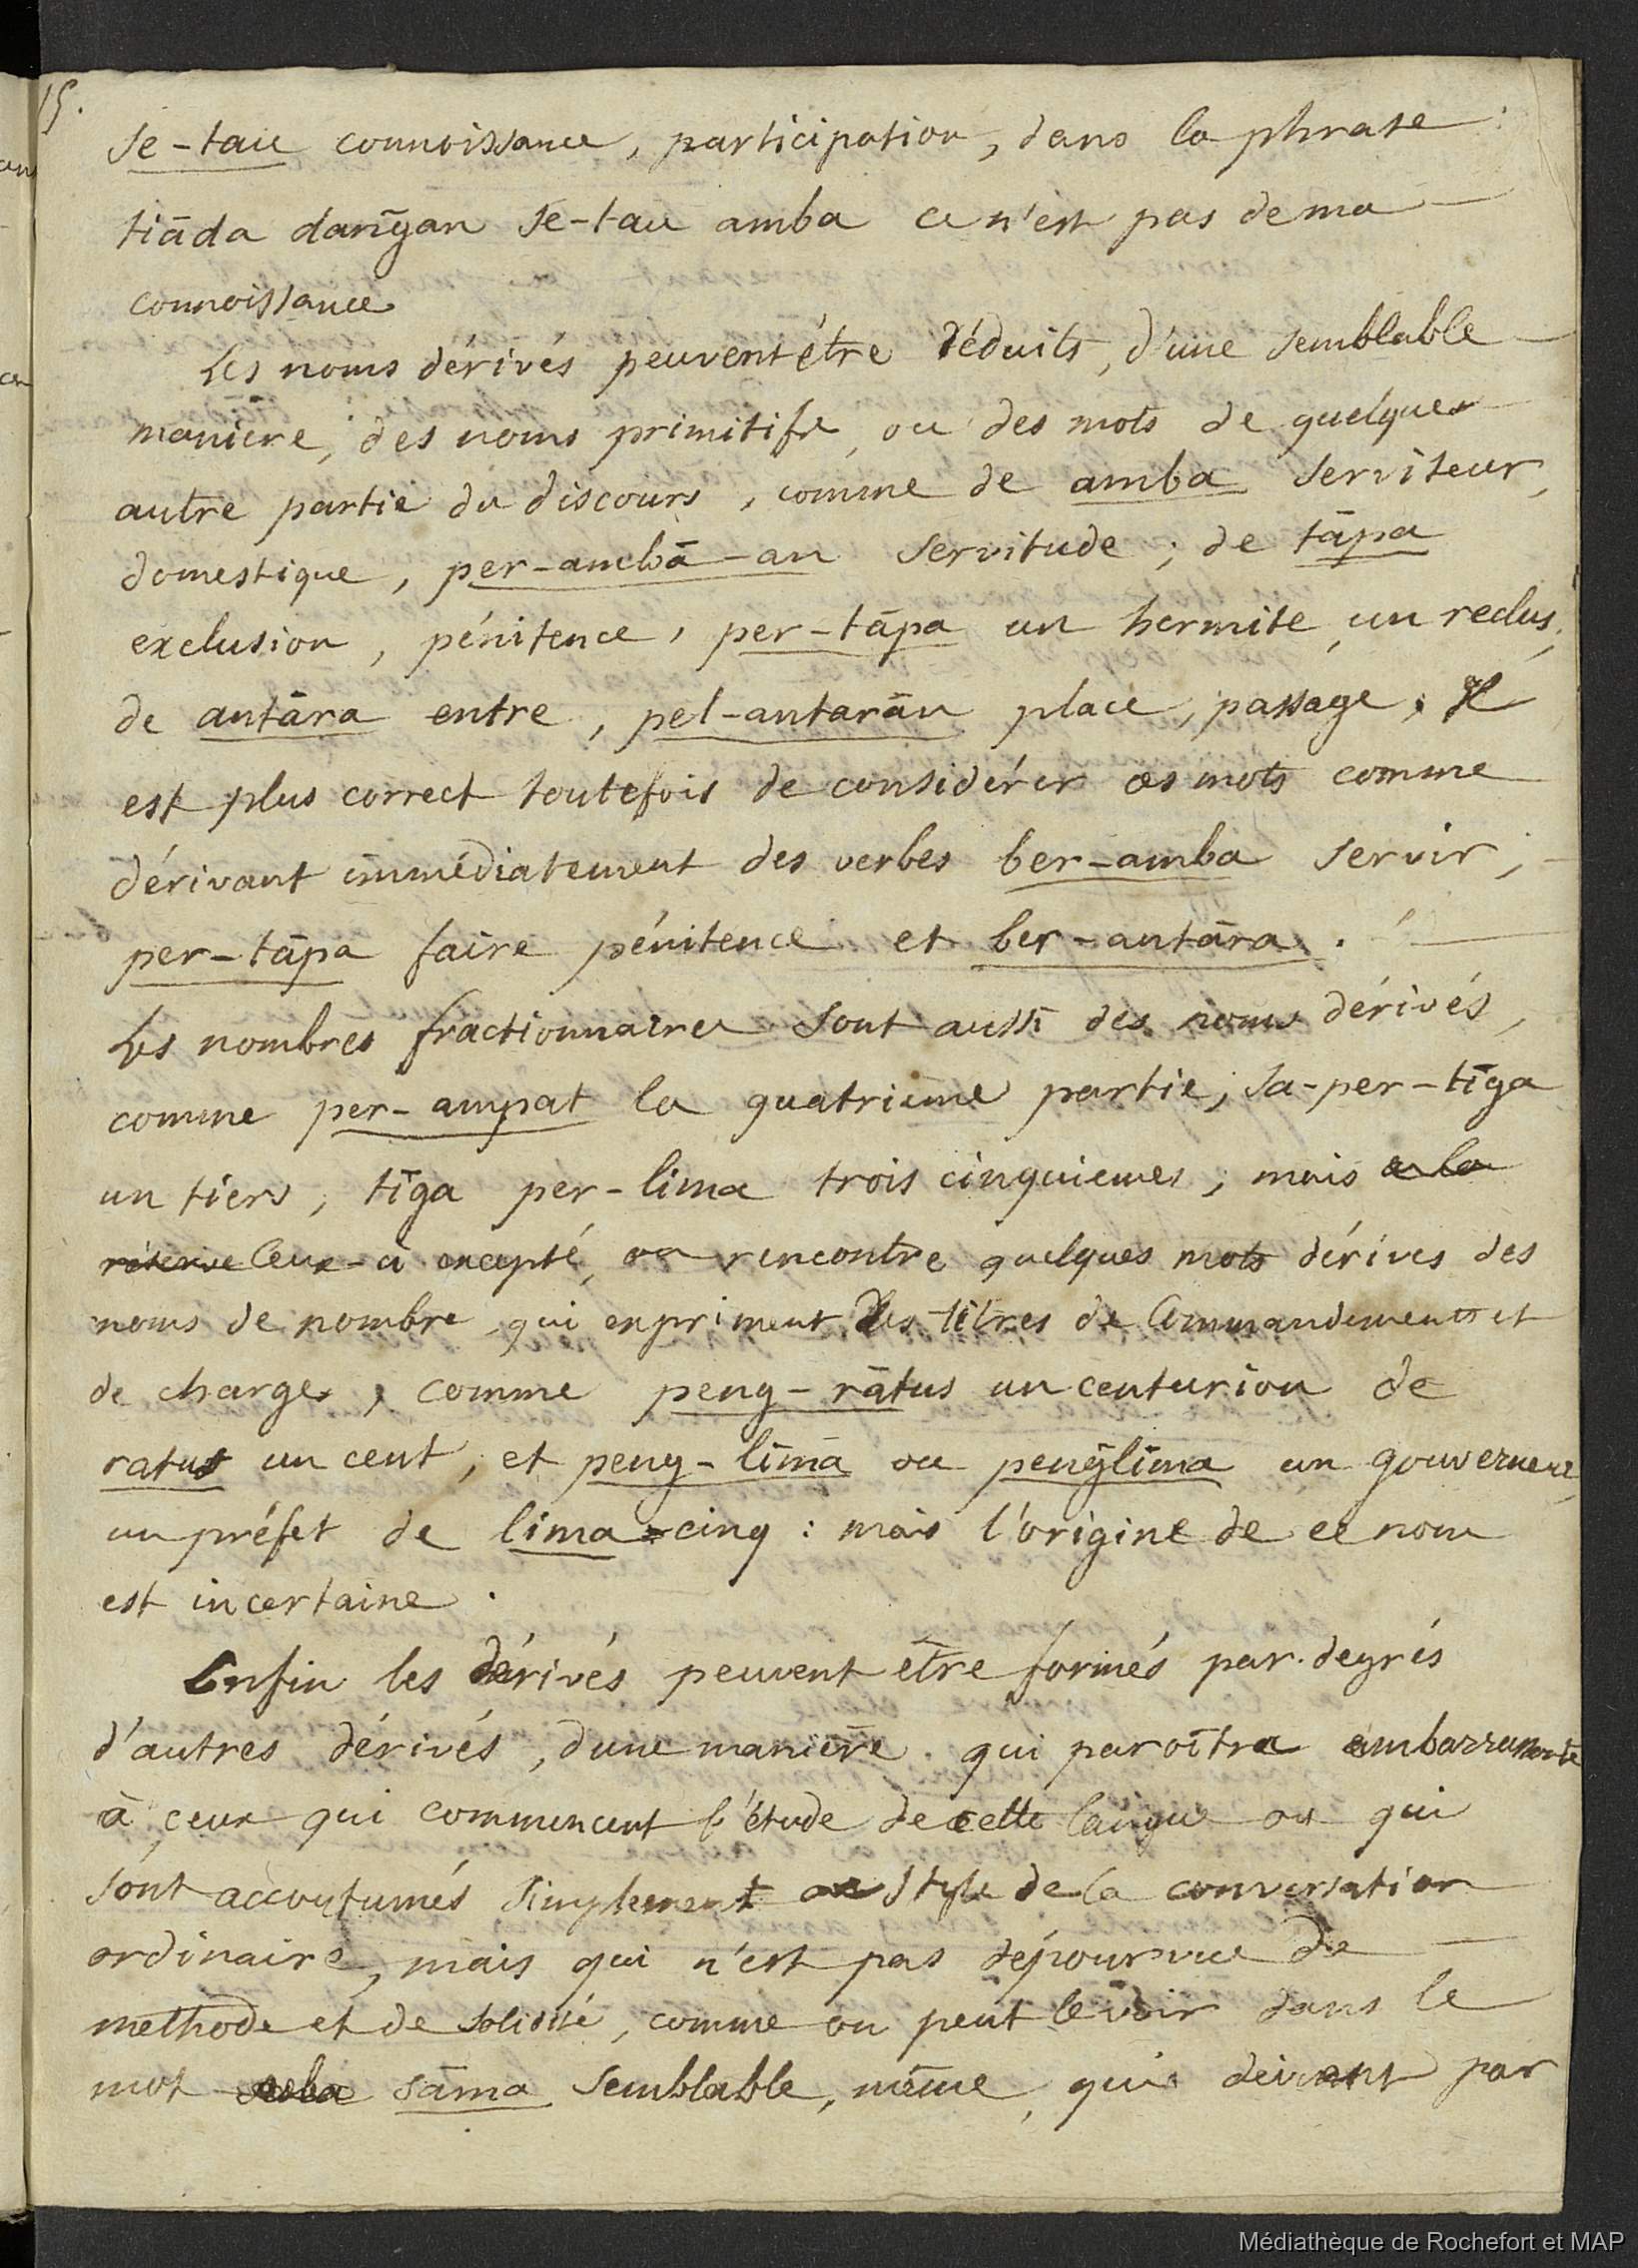 15.
se-tau connoissance, participation, dans la phrase :
tiāda darīgan se-tau amba ce n'est pas de ma
connoissance
Les noms dérivés peuvent être déduits, d'une semblable
maniere, des noms primitifs, ou des mots de quelques
autre partie du discours, comme de amba serviteur,
domestique, per-ambā-an servitude ; de tāpa
exclusion, pénitence, per-tāpa un hermite, un reclus,
de antāra entre, pel-antarān place, passage, Il
est plus correct toutefois de considérer ces mots comme
dérivant immédiatement des verbes ber-amba servir,
per-tāpa faire pénitence et ber-antāra.
Les nombres fractionnaires sont aussi des noms dérivés,
comme per-ampat la quatrième partie, sa-per-tīga
un tiers, tīga per-lima trois cinquiemes ; mais a la
réserve Ceux-ci excepté, on rencontre quelques mots dérivés des
noms de nombre, qui expriment des titres de Commandements et
de charges, comme peng-rātus un centurion de
ratus un cent, et peng-līmā ou peng̃līma un gouverneur
un préfet de lima cinq : mais l'origine de ce nom
est incertaine.
Enfin les dérivés peuvent être formés par degrés
d'autres dérivés, d'une manière qui paroîtra embarrassante
à ceux qui commencent l'étude de cette langue ou qui
sont accoutumés simplement au style de la conversation
ordinaire, mais qui n'est pas dépourvue de
méthode et de solidité, comme on peut le voir dans le
mot sāma semblable, même, qui devient par
Médiathèque de Rochefort et MAP